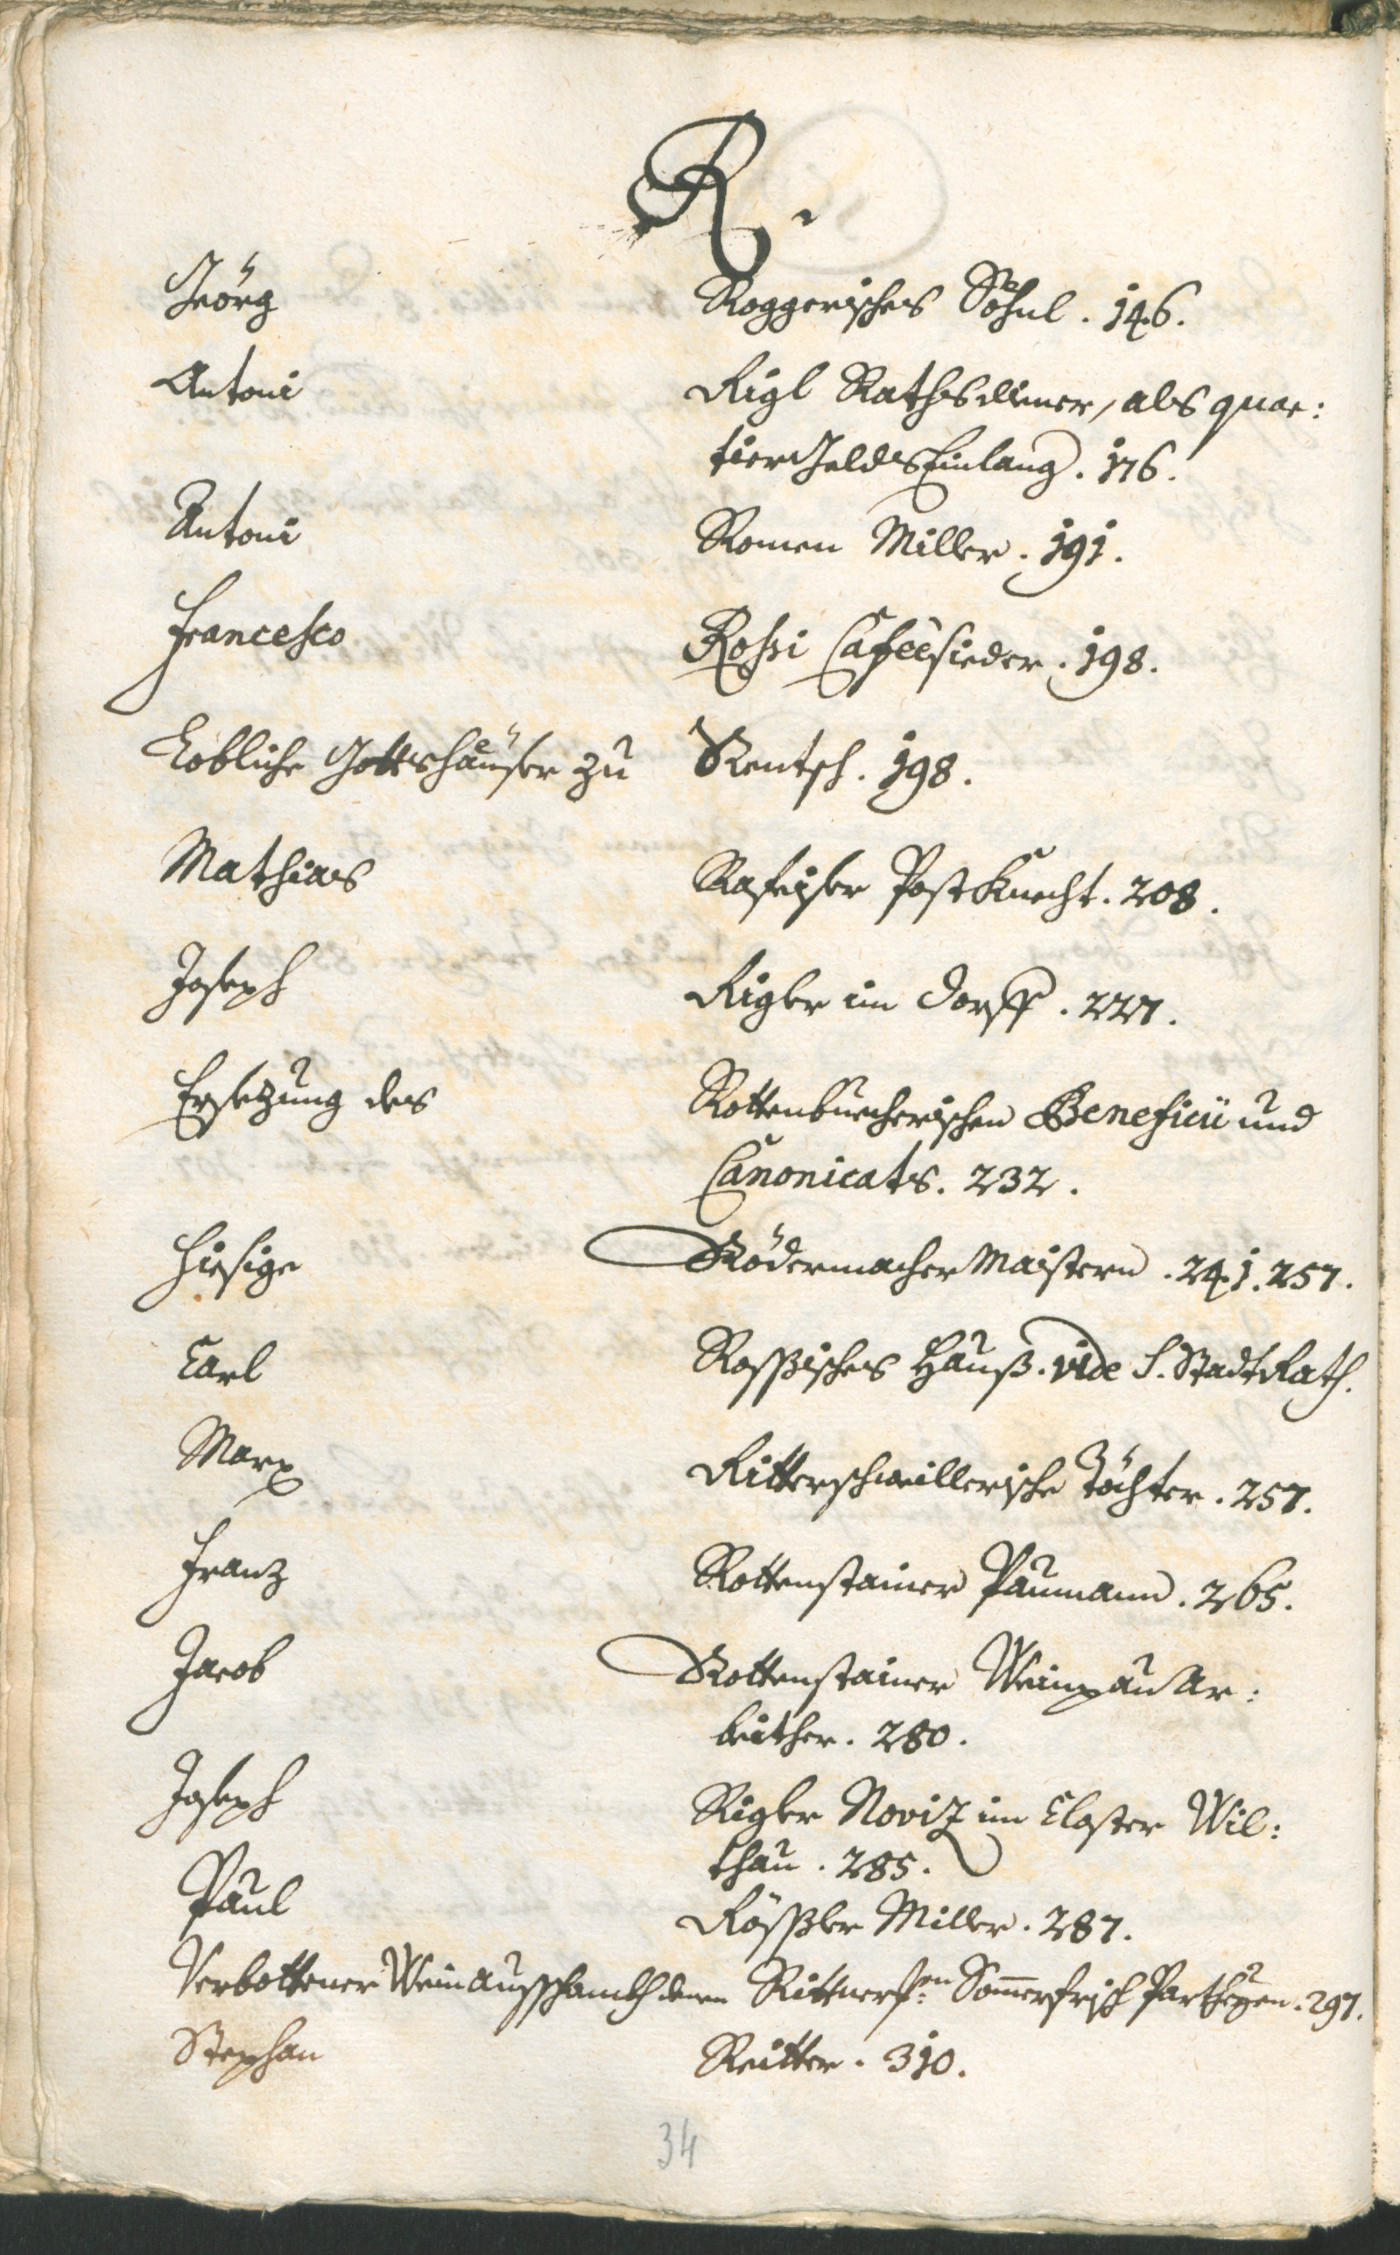 R.
Jeörg Roggerisches Söhnl. 146.
Antoni Rigl Rathsdiener, als quar:
tier Gelds Einlang. 176.
Antoni Romen Miller. 191.
Francesco Rossi Caféèsieder. 198.
Lobliche Gottshäuser zu Rentsch. 198.
Mathias Rafeiser Post Knecht. 208.
Joseph Rigler im Dorff. 227.
Ersetzung des Rottenbuecherischen Beneficii und
Canonicats. 232.
Hiesige Rödermacher Maistern. 241. 257.
Carl Rossisches Hauß. vide S. Stadt Rath.
Marx Ritterschweillerische Töchter. 257.
Franz Rottenstainer Paumann. 265.
Jacob Rottenstainer Weinpau Ar:
beither. 280.
Joseph Rigler Noviz im Closter Wil:
thau. 285.
Paul Rößler Miller. 287.
Verbottener Wein ausschankh denen Rittnerisen Somerfrisch Partheyen. 297.
Stephan Reitter. 310.
34